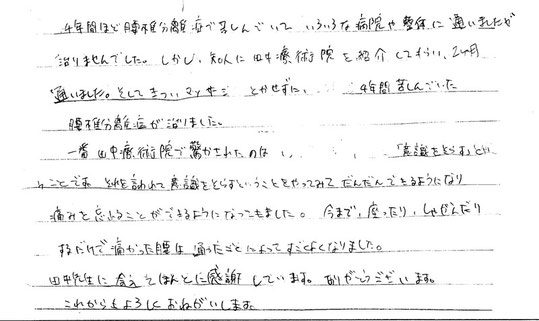 4年間ほど腰椎分離症で苦しんでいていろいろな病院や整体に通いましたが
治りませんでした。しかし、知人に田中療術院を紹介してもらい、2ヶ月
通いました。そしてきついマッサージとかせずに、4年間苦しんでいた
腰椎分離症が治りました。
一番田中療術院で驚かされたのは、「意識をとらす」とい
うことです。それを言われて意識をとらすということをやってみてだんだんできるようになり
痛みを忘れることができるようになってきました。今まで、座ったり、しゃがんだり
するだけで痛かった腰は通ったことによってすごくよくなりました。
田中先生に会えてほんとに感謝しています。ありがとうございます。
これからもよろしくおねがいします。